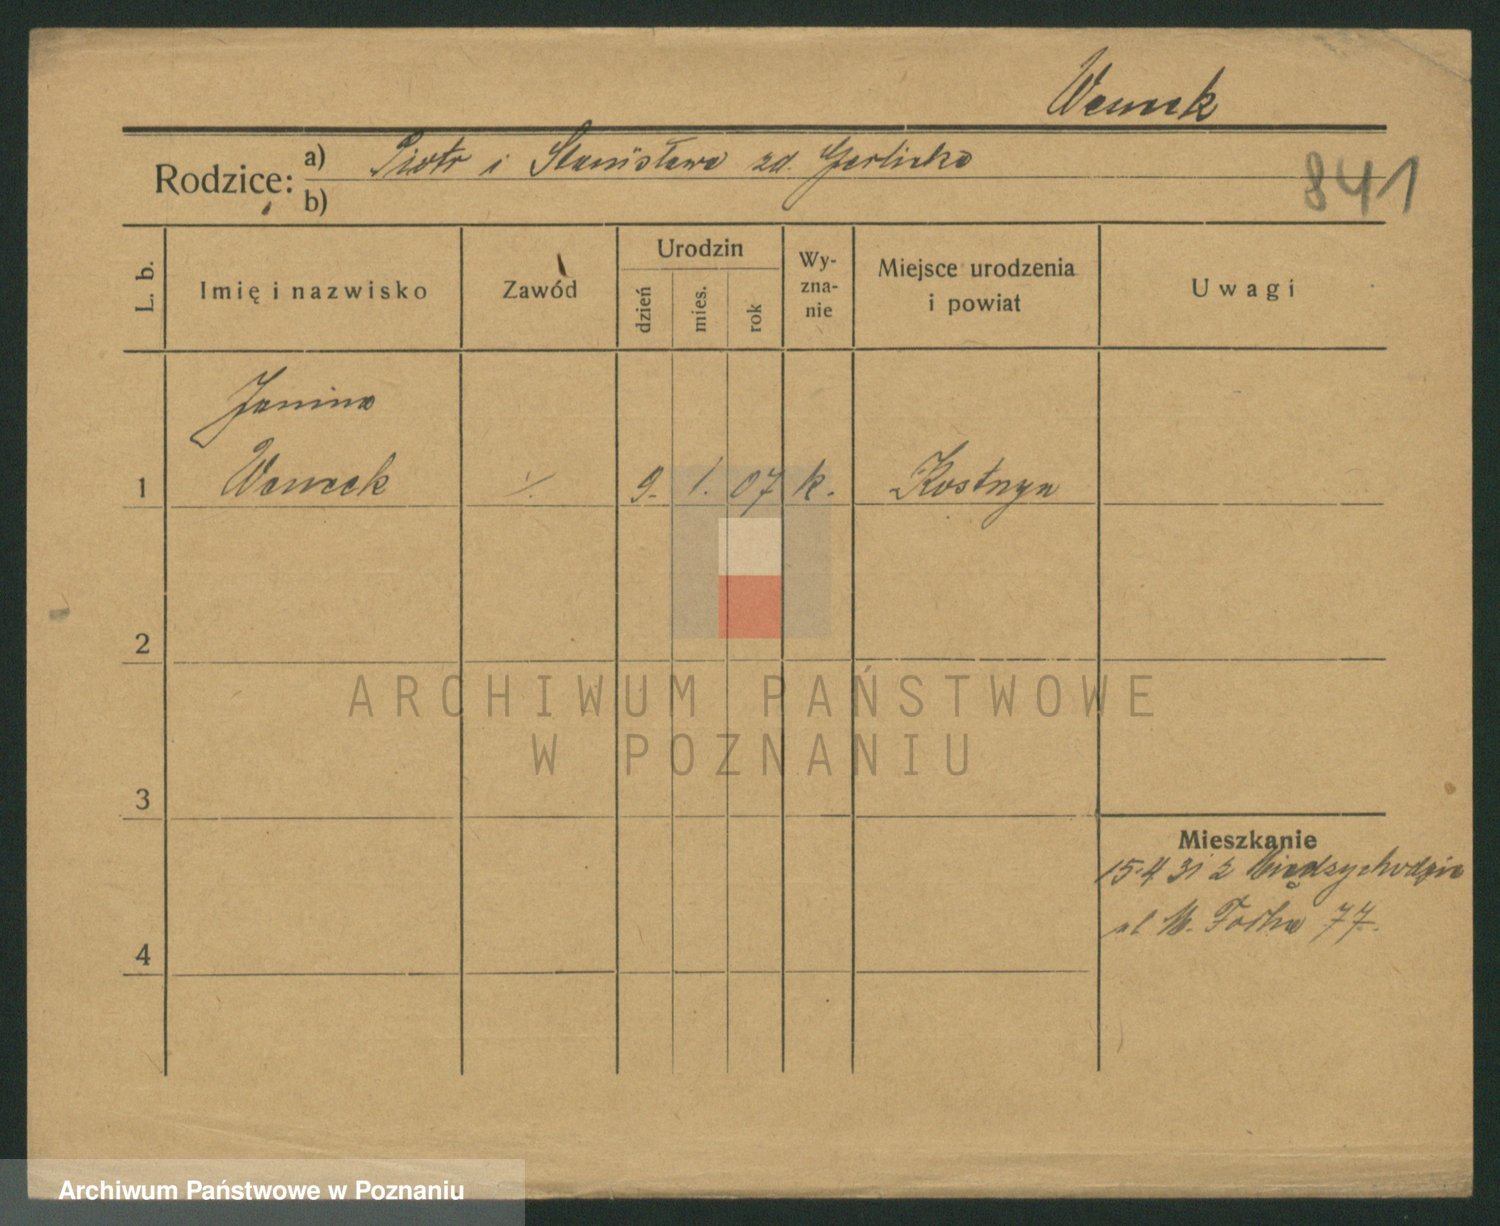 Rodzice:
a) Piotr i Stanisława zd. Garlicka
b)
841
L. b.
Imię i nazwisko
Zawód
Urodzin
dzień
mies.
rok
Wy-
zna-
nie
Miejsce urodzenia
i powiat
Uwagi
Janina
1 9. 1. 07 k. Kostrzyn
2
3
4
Mieszkanie
15.4 31 z Międzychodzie
ul M. Focha 77.
ARCHIWUM PAŃSTWOWE
W POZNANIU
Archiwum Państwowe w Poznaniu